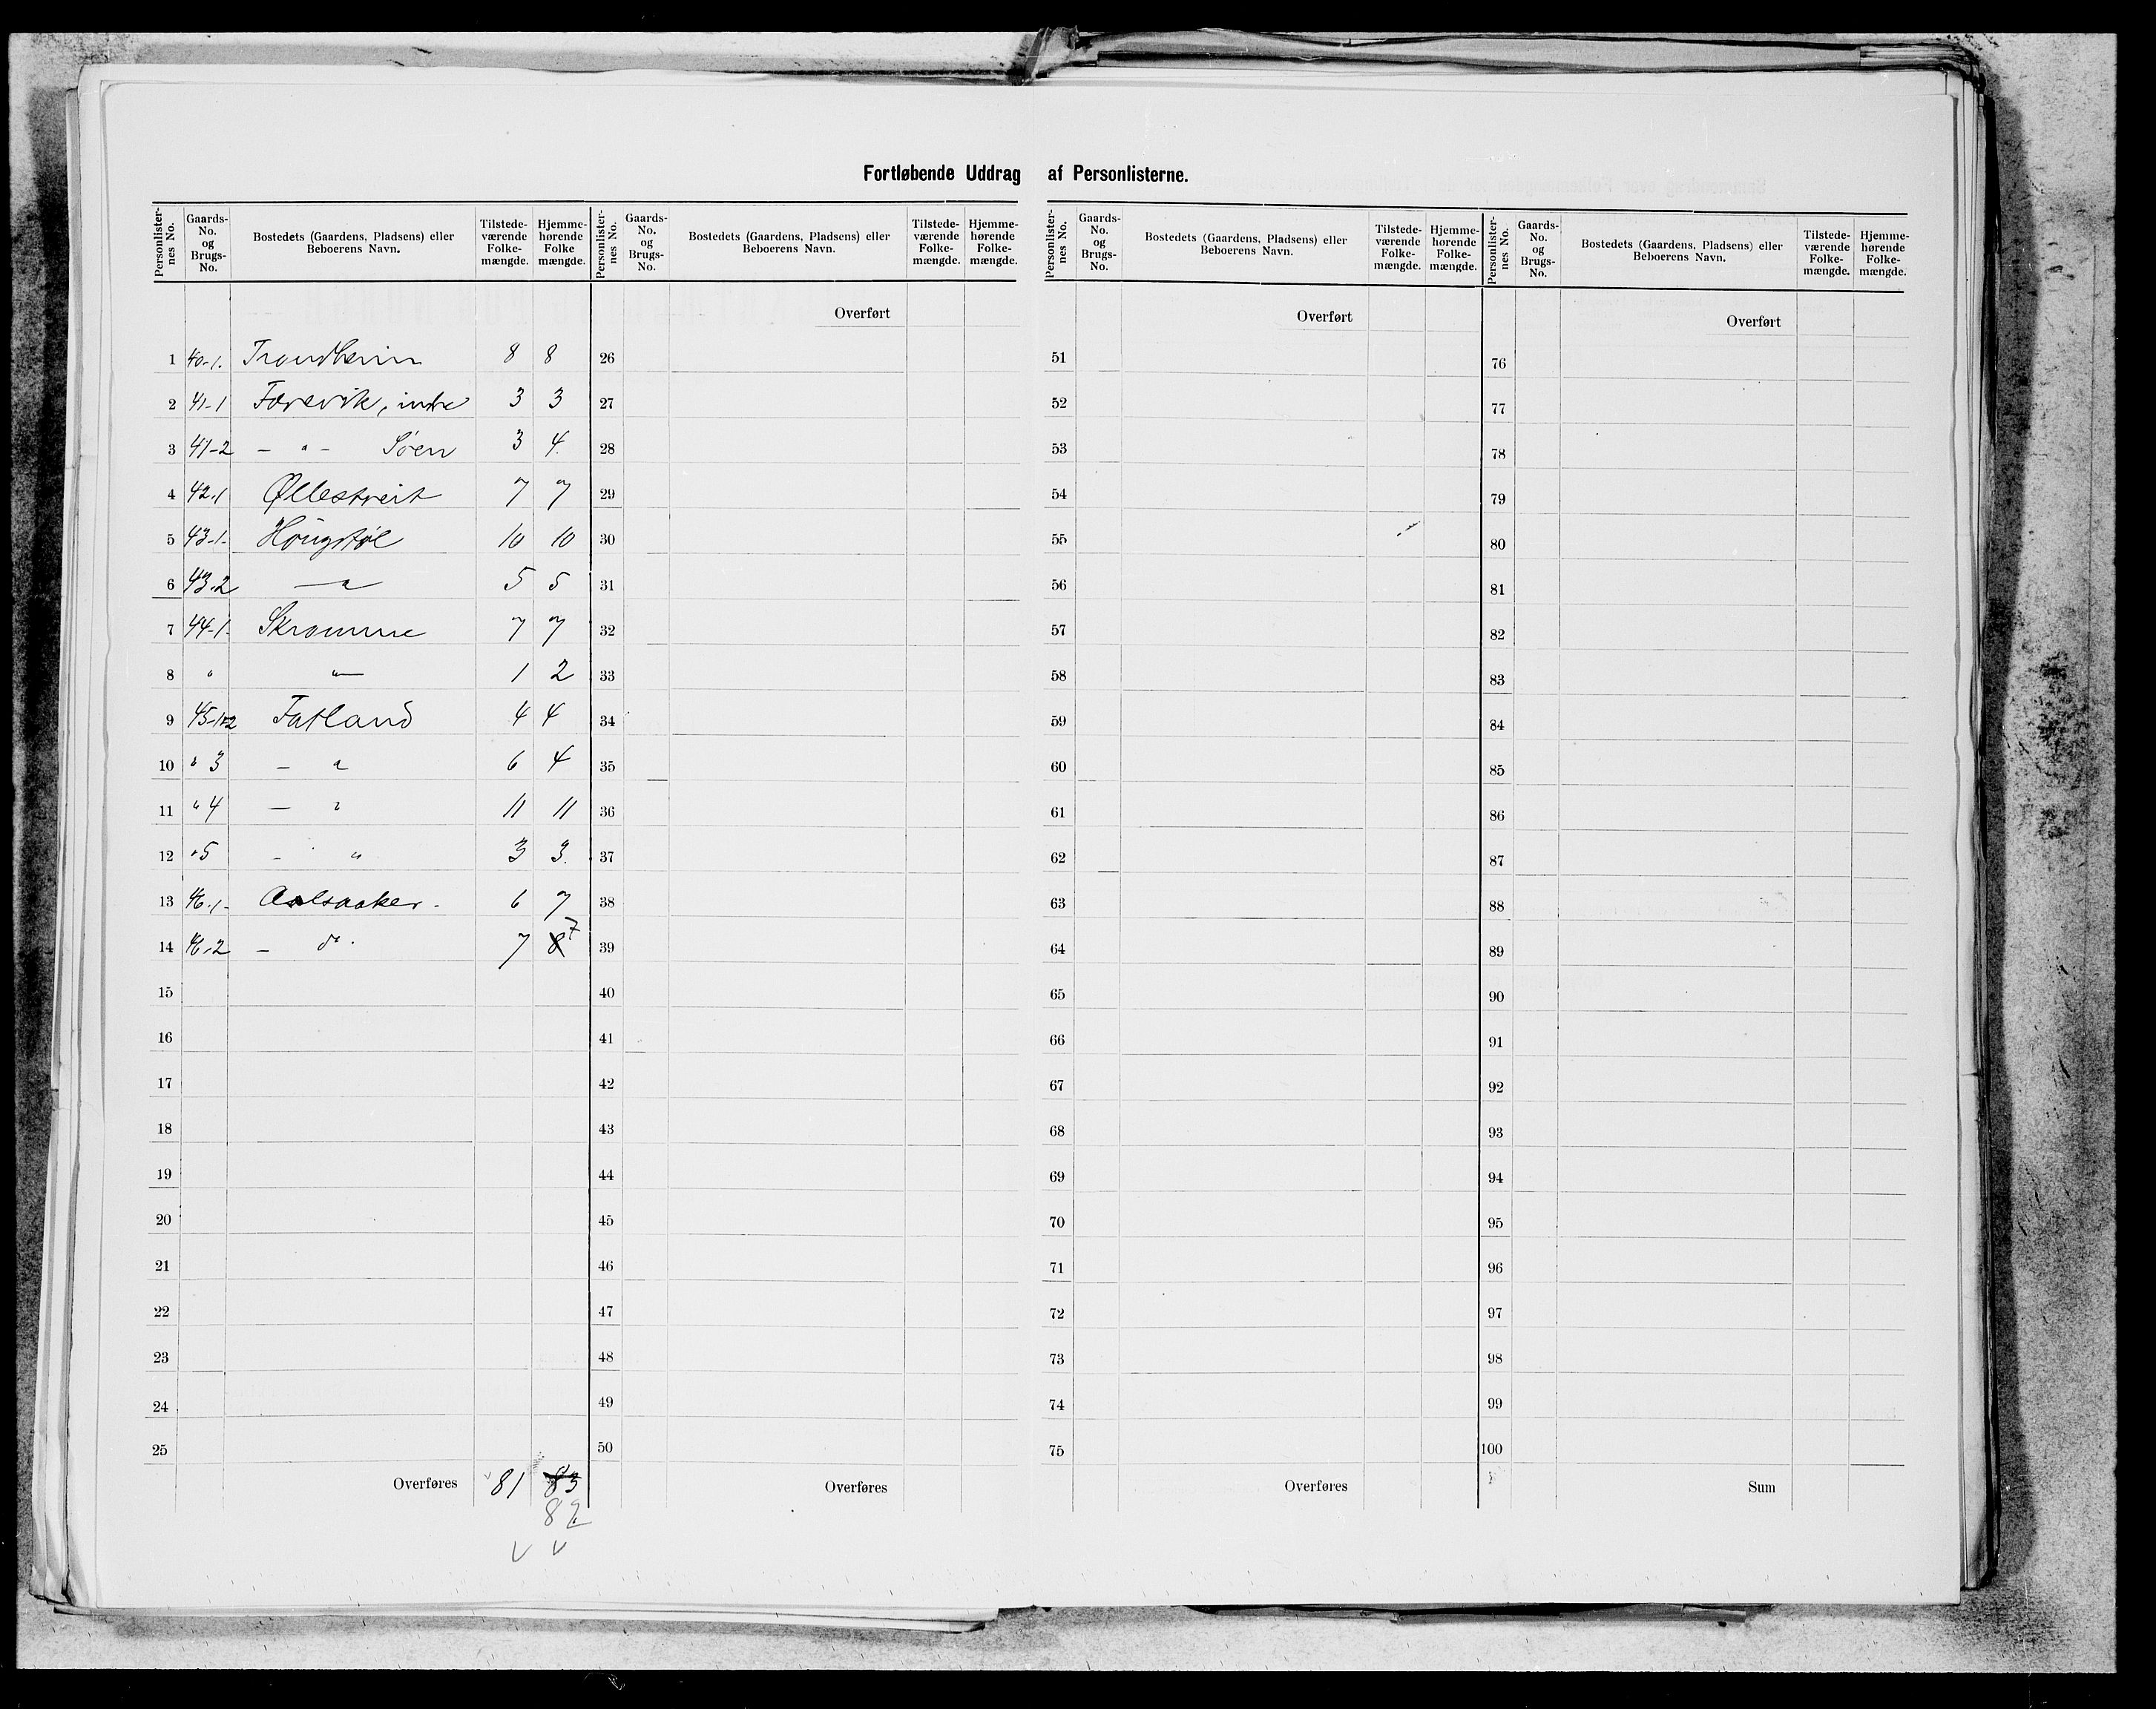 Fortløbende Uddrag af Personlisterne.
Personlister-nes No. | Gaards-No. og Brugs-No. | Bostedets (Gaardens, Pladsens) eller Beboerens Navn. | Tilstede-værende Folke-mængde. | Hjemme-hørende Folke mængde.
1 40-1. Trondheim 8 8
2 41-1 Færevik, indre 3 3
3 41-2 - " - Søen 3 4.
4 42-1 Øllestveit 7 7
5 43-1- Høugstøl 10 10
6 43.2 — " 5 5
7 44-1- Skromme 7 7
8 " " — 1 2
9 45-1+2 Fatland 4 4
10 " 3 - " 6 4
11 " 4 — " 11 11
12 " 5 - " 3 3.
13 46-1- Aalsaaker - 6 7
14 46.2 - do. 7 8 7
15
16
17
18
19
20
21
22
23
24
25
Overføres 81 83
82
Personlister-nes No. | Gaards-No. og Brugs-No. | Bostedets (Gaardens, Pladsens) eller Beboerens Navn. | Tilstede-værende Folke-mængde. | Hjemme-hørende Folke-mængde.
Overført
26
27
28
29
30
31
32
33
34
35
36
37
38
39
40
41
42
43
44
45
46
47
48
49
50
Overføres
Personlister-nes No. | Gaards-No. og Brugs-No. | Bostedets (Gaardens, Pladsens) eller Beboerens Navn. | Tilstede-værende Folke-mængde. | Hjemme-hørende Folke-mængde.
Overført
51
52
53
54
55
56
57
58
59
60
61
62
63
64
65
66
67
68
69
70
71
72
73
74
75
Overføres
Personlister-nes No. | Gaards-No. og Brugs-No. | Bostedets (Gaardens, Pladsens) eller Beboerens Navn. | Tilstede-værende Folke-mængde. | Hjemme-hørende Folke-mængde.
Overført
76
77
78
79
80
81
82
83
84
85
86
87
88
89
90
91
92
93
94
95
96
97
98
99
100
Sum